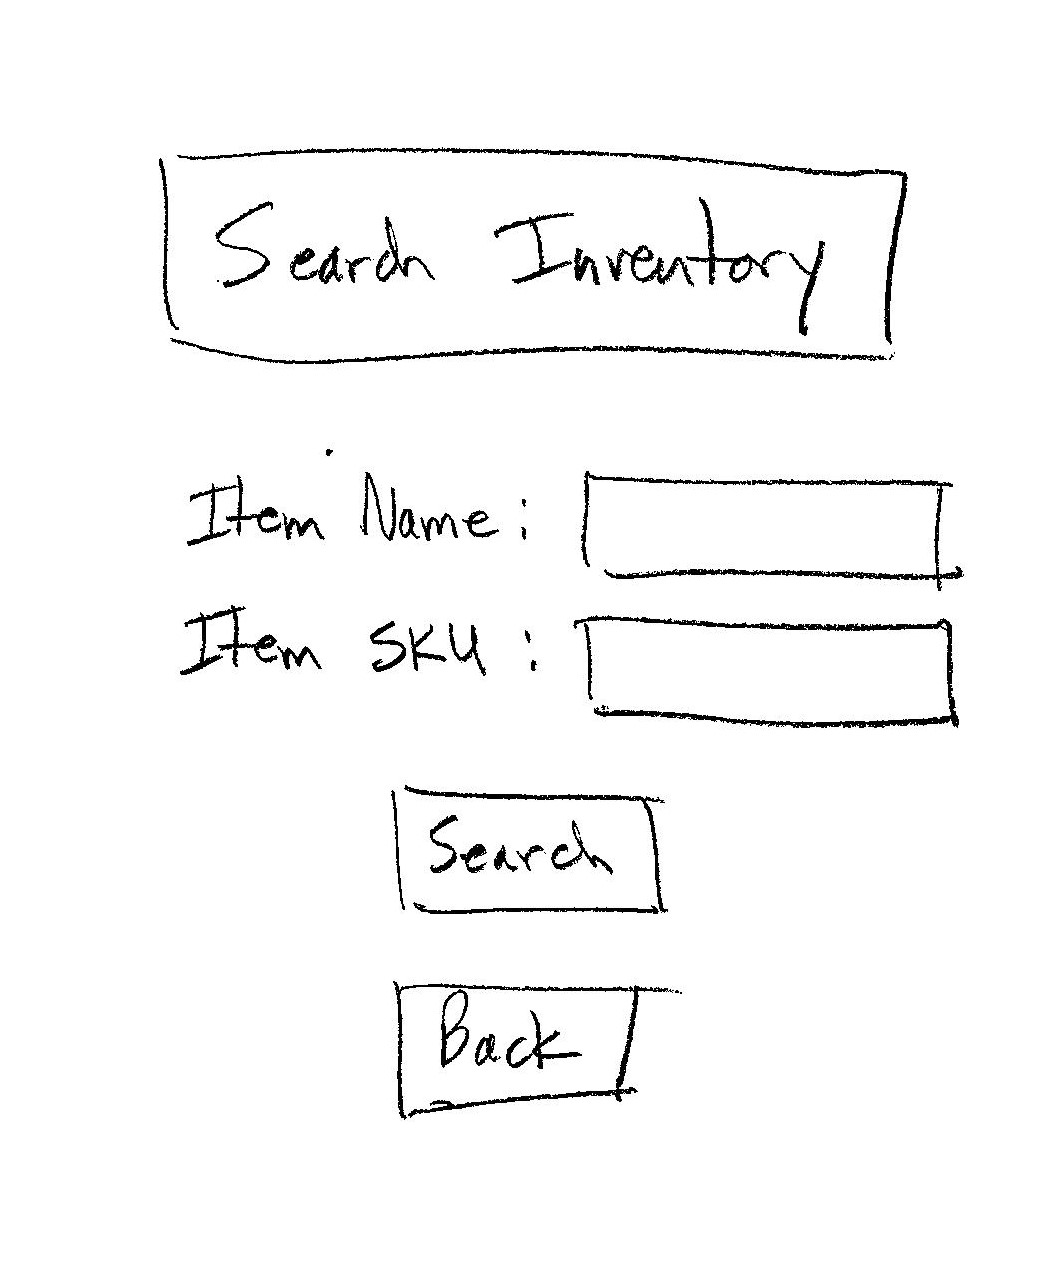 Search Inventory
Item Name:
Item SKU:
Search
Back